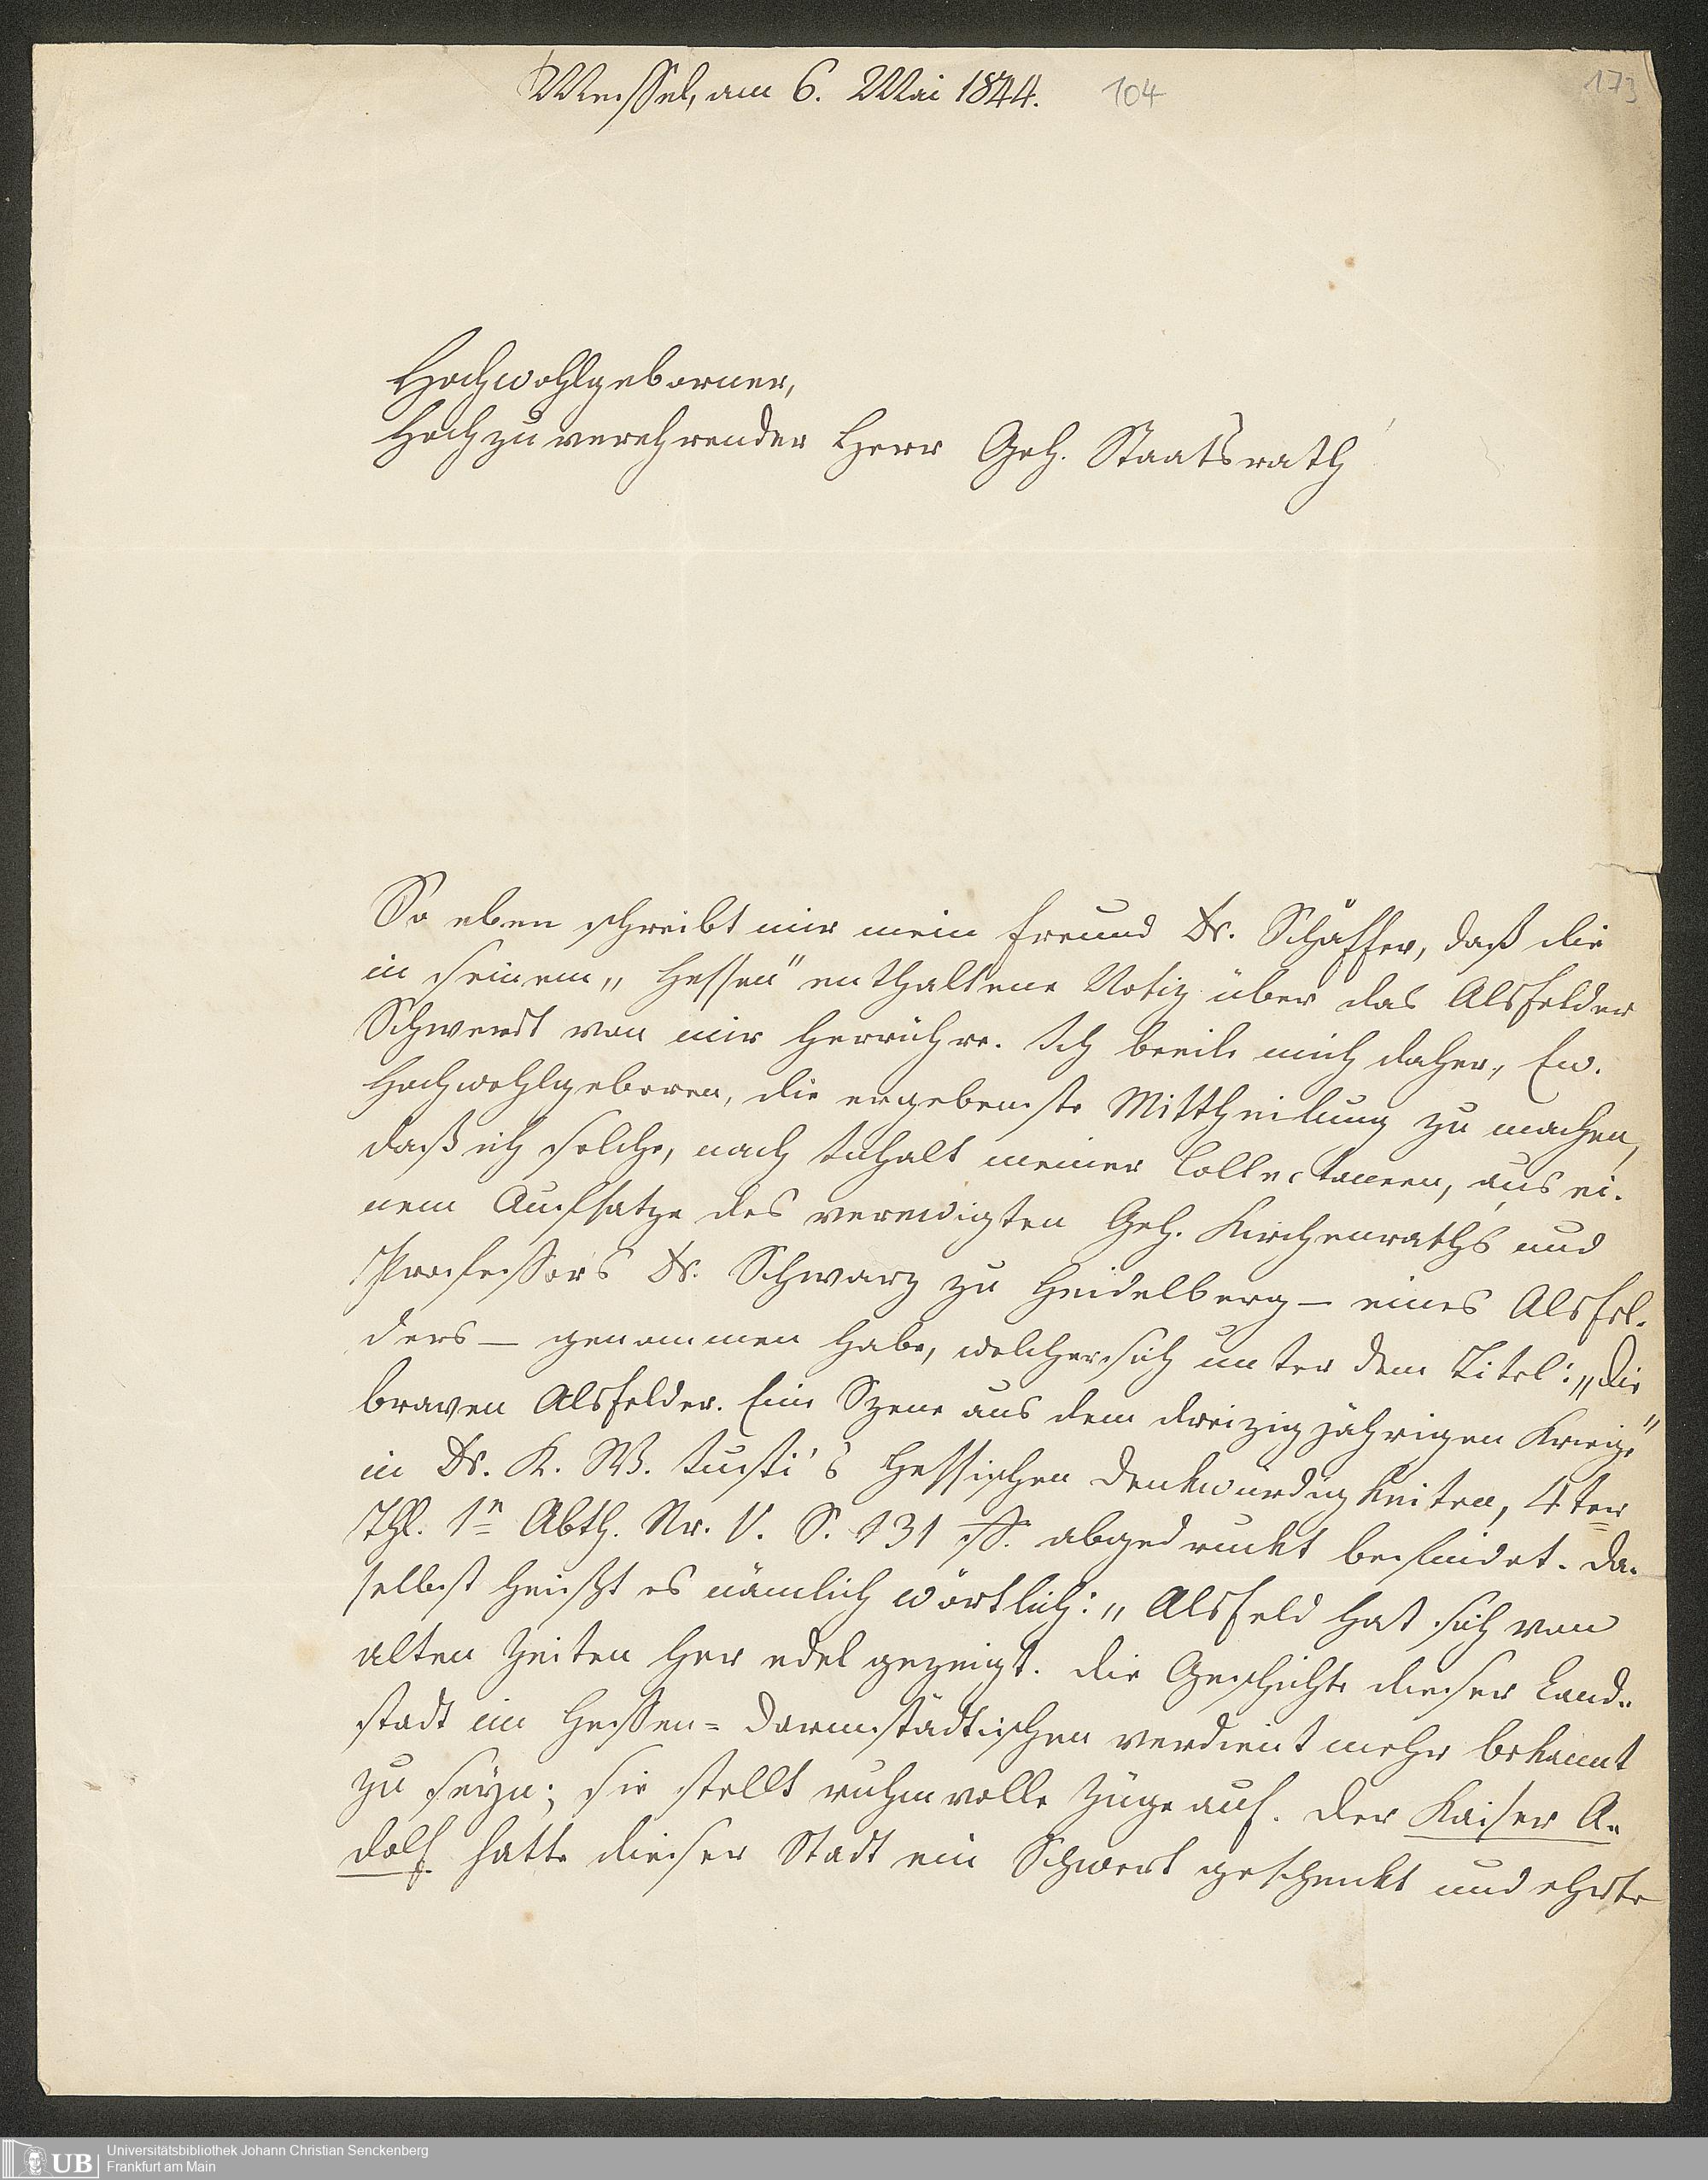 Messel, am 6. Mai 1844.
104
173
Hochwohlgeborner,
Hochzuverehrender Herr Geh. Staatsrath
So eben schreibt mir mein Freund Dr. Schäffer, daß die
in seinem „Hessen" enthaltene Notiz über das Alsfelder
Schwerdt von mir herrühre. Ich beeile mich daher, Ew.
Hochwohlgeboren, die ergebenste Mittheilung zu machen,
daß ich solche, nach Inhalt meiner Collectaneen, aus ei-
nem Aufsatze des verewigten Geh. Kirchenraths und
Professors Dr. Schwarz zu Heidelberg – eines Alsfel-
ders – genommen habe, welcher sich unter dem Titel: „Die
braven Alsfelder. Eine Szene aus dem dreizigjährigen Kriege"
in Dr. K. W. Justi's Hessischen Denkwürdigkeiten, 4ter
Thl. 1n Abth. Nr. V. S. 131 ff. abgedruckt befindet. Da-
selbst heißt es nämlich wörtlich: „Alsfeld hat sich von
alten Zeiten her edel gezeigt. Die Geschichte dieser Land-
stadt im Hessen-Darmstädtischen verdient mehr bekannt
zu seyn; sie stellt ruhmvolle Züge auf. Der Kaiser A-
dolf hatte dieser Stadt ein Schwert geschenkt und ehrte
UB
Universitätsbibliothek Johann Christian Senckenberg
Frankfurt am Main